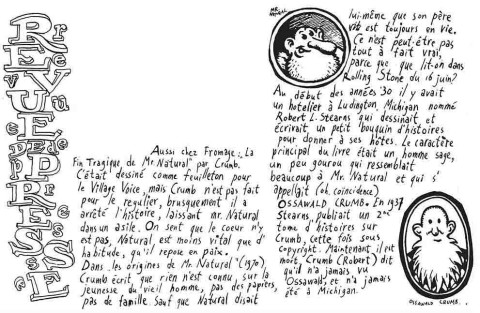 REVUE DE PRESSE
Revue de presse
Aussi chez Fromage: La
Fin Tragique de Mr. Natural" par Crumb.
C'était dessiné comme feuilleton pour
le Village Voice, mais Crumb n'est pas fait
pour le regulier, brusquement il a
arrêté l'histoire, laissant mr. Natural
dans un asile. On sent que le coeur n'y
est pas, Natural est moins vital que d'
habitude, qu'il repose en paix.
Dans "les origines de Mr. Natural" (1970)
Crumb écrit, que rien n'est connu, sur la
jeunesse du vieil homme, pas des papiers,
pas de famille. Sauf que Natural disait
MR. NATURAL
lui-même que son père
est toujours en vie.
Ce n'est peut-être pas
tout à fait vrai,
parce que que lit-on dans
Rolling Stone du 16 juin?
Au début des années 30 il y avait
un hotelier à Ludington, Michigan nommé
Robert L. Stearns qui dessinait, et
écrivait, un petit bouquin d'histoires
pour donner à ses hôtes. Le caractère
principal du livre était un homme sage,
un peu gourou qui ressemblait
beaucoup à Mr. Natural et qui s'
appellait (oh, coincidence)
OSSAWALD CRUMB. En 1937
Stearns, publiait un 2me
tome d'histoires sur
Crumb, cette fois sous
copyright. Maintenant il est
mort, Crumb (Robert) dit
qu'il n'a jamais vu
Ossawald, et n'a jamais
été à Michigan.
OSSAWALD CRUMB.